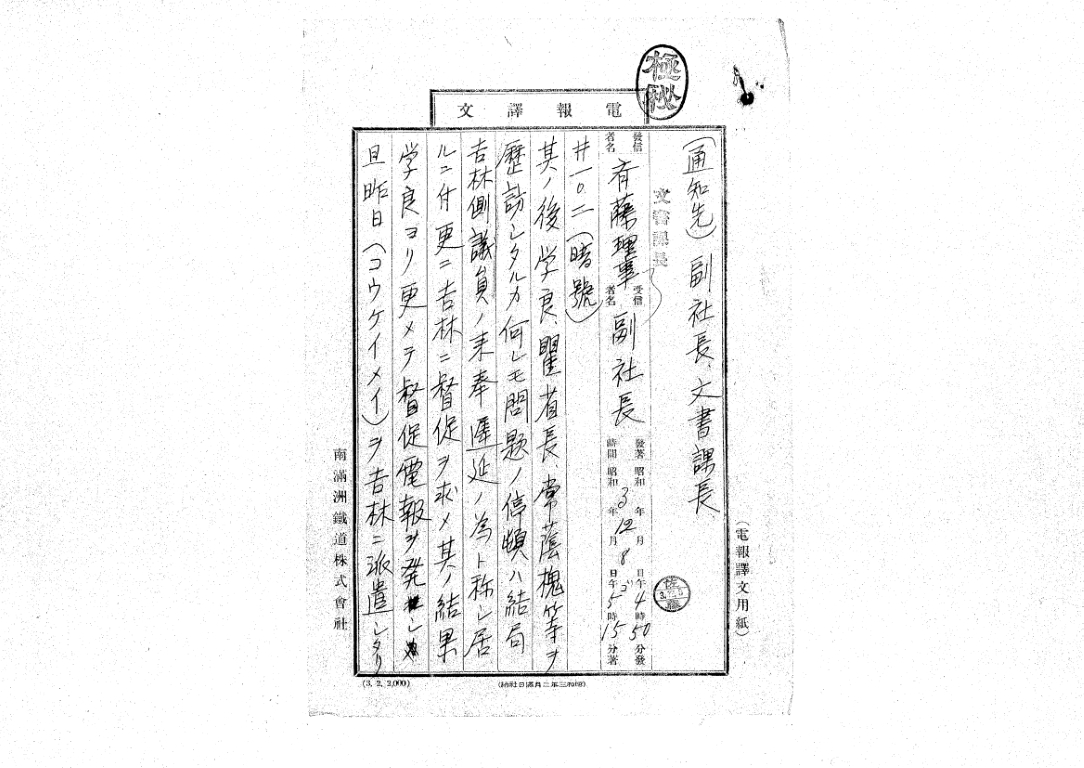 極秘
電報譯文
(通知先)副社長、文書課長、
文書課長
發信者名 斉藤理事 受信者名 副社長 發著 昭和3年12月8日午 4時50分發
時間 昭和 年 月 日午 5時15分著
佐藤
#一〇二(暗號)
其ノ後学良、瞿省長、常蔭槐等ヲ
歴訪シタルカ何レモ問題ノ停頓ハ結局
吉林側議員ノ来奉遅延ノ為ト称シ居
ルニ付更ニ吉林ニ督促ヲ求メ其ノ結果
学良ヨリ更メテ督促電報ヲ発シ
且昨日(コウケイメイ)ヲ吉林ニ派遣シタリ
(電報譯文用紙)
南滿洲鐵道株式會社
(3. 2. 2,000)